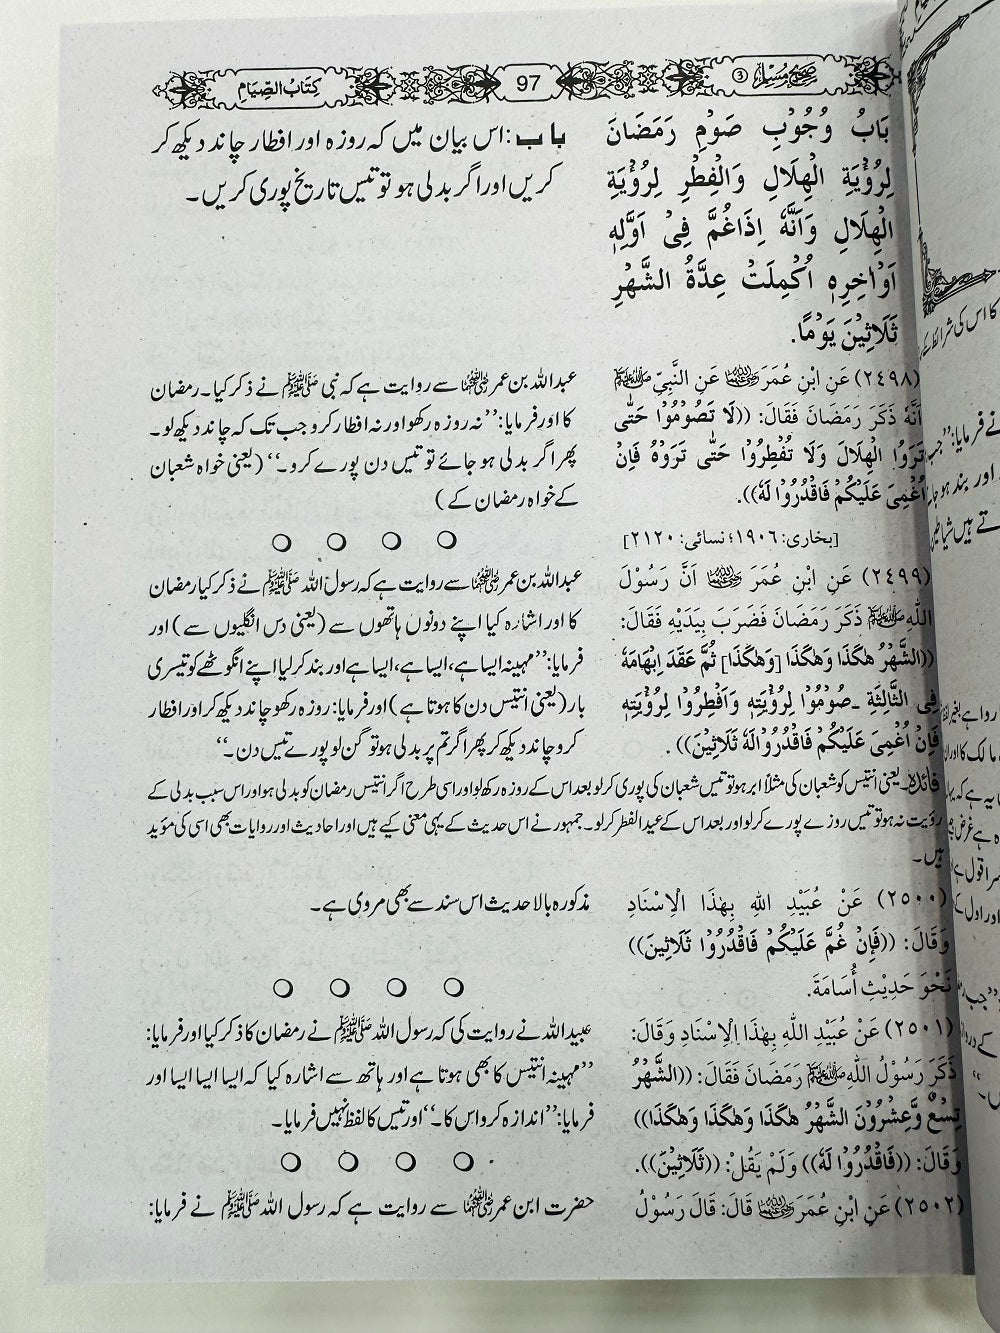 صحیح مسلم ③
97
کِتَابُ الصِّیَامِ
بَابُ وُجُوْبِ صَوْمِ رَمَضَانَ
لِرُؤْيَةِ الْهِلَالِ وَالْفِطْرِ لِرُؤْيَةِ
الْهِلَالِ وَاَنَّهٗ اِذَاغُمَّ فِیْ اَوَّلِهٖ
اَوْاٰخِرِهٖ اُكْمِلَتْ عِدَّةُ الشَّهْرِ
ثَلَاثِيْنَ يَوْمًا.
باب: اس بیان میں کہ روزہ اور افطار چاند دیکھ کر
کریں اور اگر بدلی ہو تو تیس تاریخ پوری کریں۔
(۲٤۹۸) عَنِ ابْنِ عُمَرَ رضی اللہ عنہما عَنِ النَّبِيِّ ﷺ
اَنَّهٗ ذَكَرَ رَمَضَانَ فَقَالَ: ((لَا تَصُوْمُوْا حَتّٰى
تَرَوُا الْهِلَالَ وَلَا تُفْطِرُوْا حَتّٰى تَرَوْهُ فَاِنْ
اُغْمِيَ عَلَيْكُمْ فَاقْدُرُوْا لَهٗ)).
[بخاری: ۱۹۰٦؛ نسائی: ۲۱۲۰]
عبداللہ بن عمر رضی اللہ عنہما سے روایت ہے کہ نبی ﷺ نے ذکر کیا۔ رمضان
کا اور فرمایا: ’’نہ روزہ رکھو اور نہ افطار کرو جب تک کہ چاند دیکھ لو۔
پھر اگر بدلی ہو جائے تو تیس دن پورے کرو۔‘‘ (یعنی خواہ شعبان
کے خواہ رمضان کے)
(۲٤۹۹) عَنِ ابْنِ عُمَرَ رضی اللہ عنہما اَنَّ رَسُوْلَ
اللّٰهِ ﷺ ذَكَرَ رَمَضَانَ فَضَرَبَ بِيَدَيْهِ فَقَالَ:
((الشَّهْرُ هٰكَذَا وَهٰكَذَا [وَهٰكَذَا] ثُمَّ عَقَدَ اِبْهَامَهٗ
فِي الثَّالِثَةِ ـ صُوْمُوْا لِرُؤْيَتِهٖ وَاَفْطِرُوْا لِرُؤْيَتِهٖ
فَاِنْ اُغْمِيَ عَلَيْكُمْ فَاقْدُرُوْالَهٗ ثَلَاثِيْنَ)).
عبداللہ بن عمر رضی اللہ عنہما سے روایت ہے کہ رسول اللہ ﷺ نے ذکر کیا رمضان
کا اور اشارہ کیا اپنے دونوں ہاتھوں سے (یعنی دس انگلیوں سے) اور
فرمایا: ’’مہینہ ایسا ہے، ایسا ہے، ایسا ہے اور بند کر لیا اپنے انگوٹھے کو تیسری
بار (یعنی انتیس دن کا ہوتا ہے) اور فرمایا: روزہ رکھو چاند دیکھ کر اور افطار
کرو چاند دیکھ کر پھر اگر تم پر بدلی ہو تو گن لو پورے تیس دن۔‘‘
فائدہ۔ یعنی انتیس کو شعبان کی مثلاً ابر ہو تو تیس شعبان کی پوری کر لو بعد اس کے روزہ رکھ لو اور اسی طرح اگر انتیس رمضان کو بدلی ہو اور اس سبب بدلی کے
رؤیت نہ ہو تو تیس روزے پورے کر لو اور بعد اس کے عید الفطر کر لو۔ جمہور نے اس حدیث کے یہی معنی کیے ہیں اور احادیث اور روایات بھی اسی کی مؤید
ہیں۔
(۲٥۰۰) عَنْ عُبَيْدِ اللّٰهِ بِهٰذَا الْاِسْنَادِ
وَقَالَ: ((فَاِنْ غُمَّ عَلَيْكُمْ فَاقْدُرُوْا ثَلَاثِيْنَ))
نَحْوَ حَدِيْثِ أُسَامَةَ.
مذکورہ بالا حدیث اس سند سے بھی مروی ہے۔
(۲٥۰۱) عَنْ عُبَيْدِ اللّٰهِ بِهٰذَا الْاِسْنَادِ وَقَالَ:
ذَكَرَ رَسُوْلُ اللّٰهِ ﷺ رَمَضَانَ فَقَالَ: ((الشَّهْرُ
تِسْعٌ وَّعِشْرُوْنَ الشَّهْرُ هٰكَذَا وَهٰكَذَا وَهٰكَذَا))
وَقَالَ: ((فَاقْدُرُوْا لَهٗ)) وَلَمْ يَقُلْ: ((ثَلَاثِيْنَ)).
عبید اللہ نے روایت کی کہ رسول اللہ ﷺ نے رمضان کا ذکر کیا اور فرمایا:
’’مہینہ انتیس کا بھی ہوتا ہے اور ہاتھ سے اشارہ کیا کہ ایسا ایسا ایسا اور
فرمایا: ’’اندازہ کرو اس کا۔‘‘ اور تیس کا لفظ نہیں فرمایا۔
(۲٥۰۲) عَنِ ابْنِ عُمَرَ رضی اللہ عنہما قَالَ: قَالَ رَسُوْلُ
حضرت ابن عمر رضی اللہ عنہما سے روایت ہے کہ رسول اللہ ﷺ نے فرمایا: